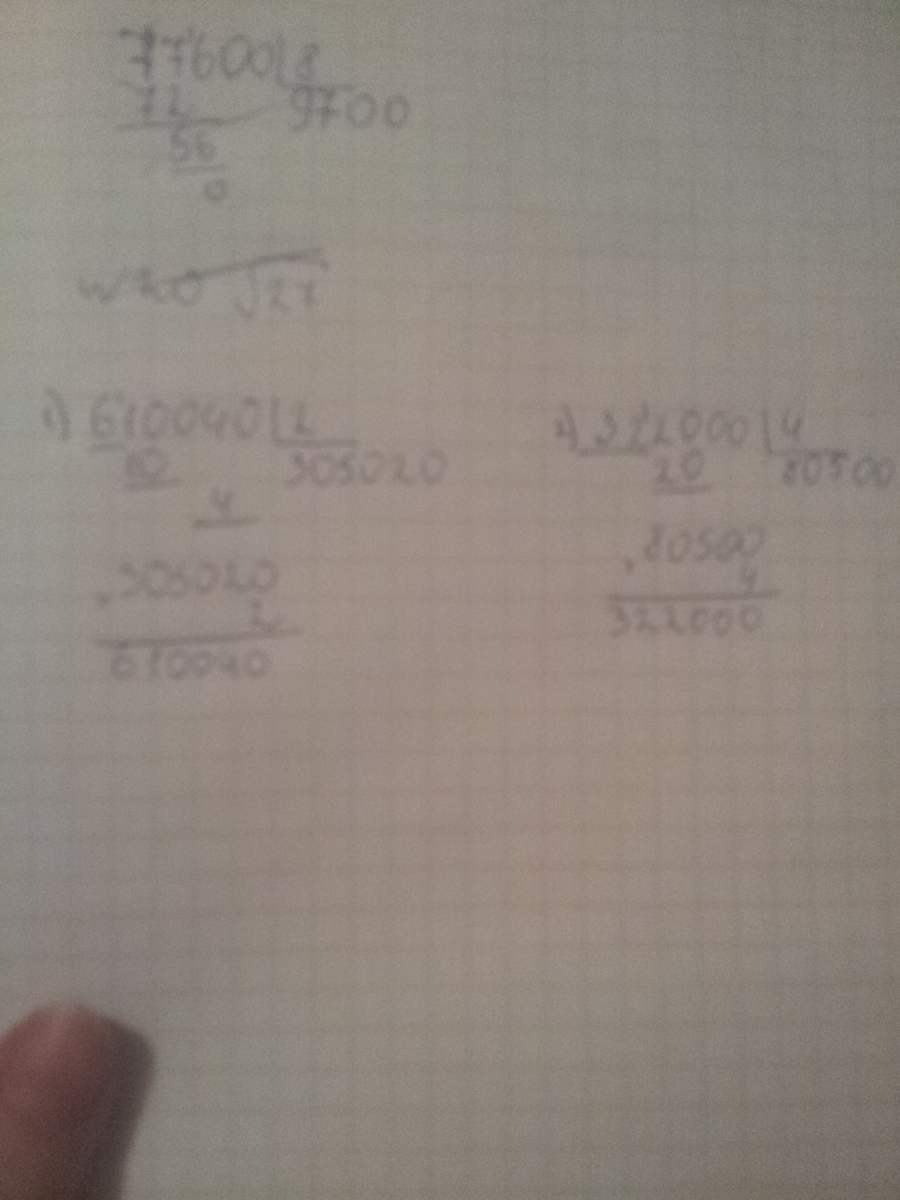 77600 8
72 9700
56
0
1) 610040 2
10 305020
4
305020
2
610040
2) 322000 4
20 80500
80500
4
322000